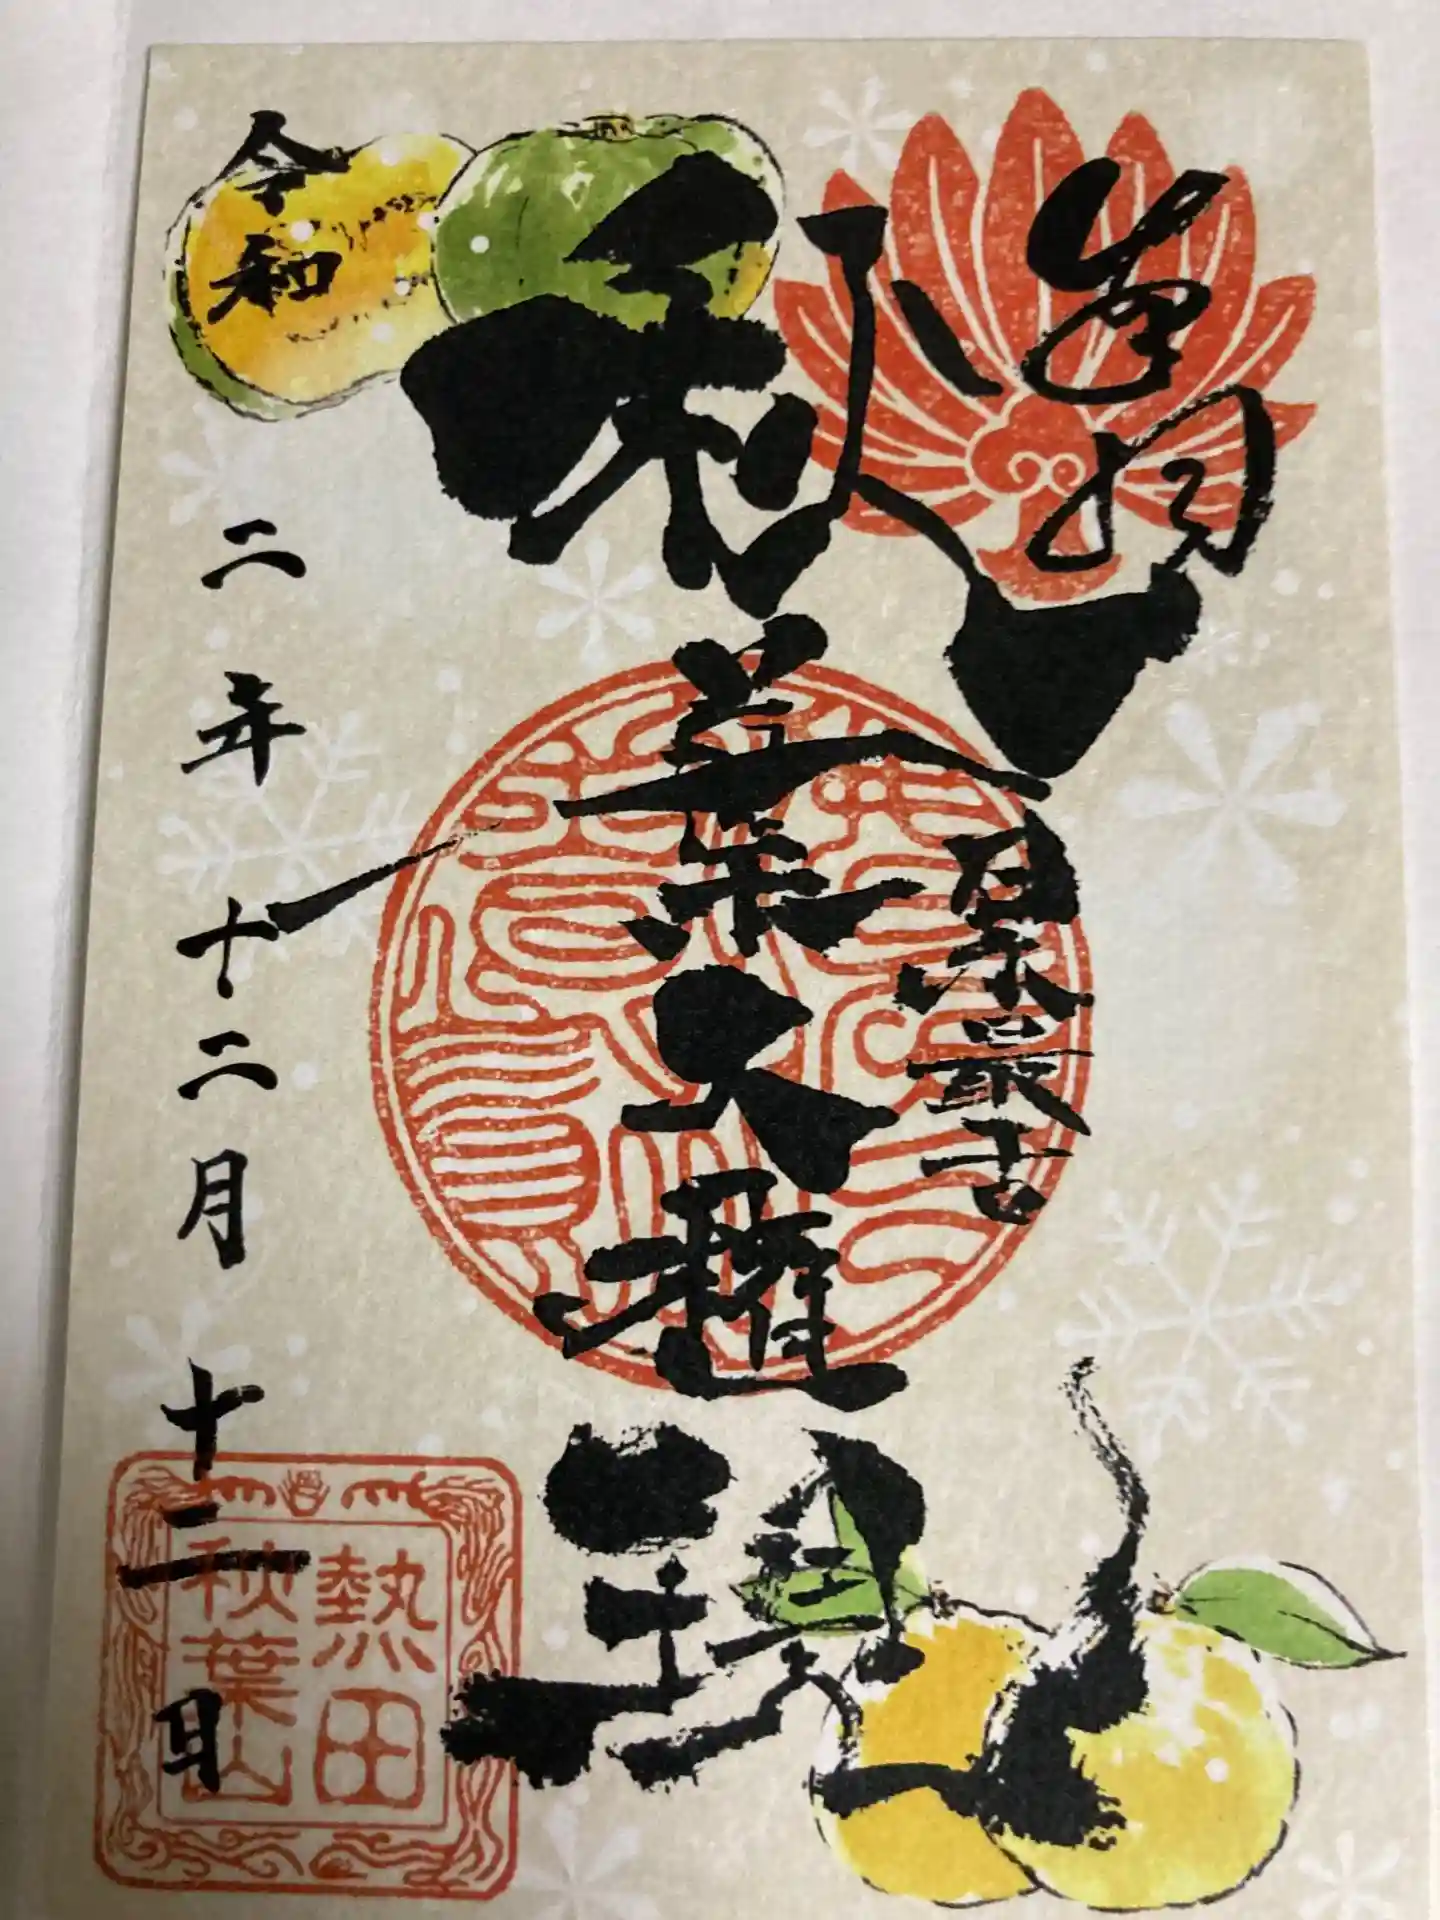 奉拝
日本最古
秋葉大権現
令和二年十二月十二日
熱田
秋葉山